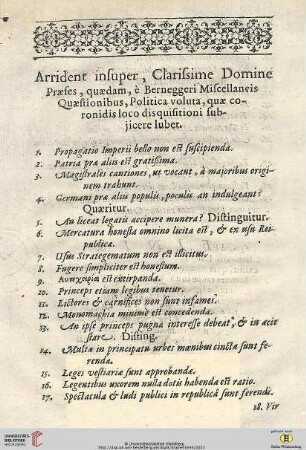 Arrident insuper, Clarissime Domine
Præses, quædam, è Berneggeri Miscellaneis
Quæstionibus, Politica voluta, quæ co-
ronidis loco disquisitioni sub-
jicere lubet.
1. Propagatio Imperii bello non est suscipienda.
2. Patria præ aliis est gratissima.
3. Magistrales cantiones, ut vocant, à majoribus origi-
nem trahunt.
4. Germani præ aliis populis, poculis an indulgeant?
Quæritur.
5. An liceat legatis accipere munera? Distinguitur.
6. Mercatura honesta omnino licita est, & ex usu Rei-
publicæ.
7. Usus Strategematum non est illicitus.
8. Fugere simpliciter est honestum.
9. est extirpanda.
10. Princeps etiam legibus tenetur.
11. Lictores & carnifices non sunt infames.
12. Monomachia minimè est concedenda.
13. An ipse princeps pugnæ interesse debeat, & in acie
stare. Disting.
14. Multæ in principatu urbes mœnibus cinctæ sunt fe-
rendæ.
15. Leges vestiariæ sunt approbandæ.
16. Legentibus uxorem nulla dotis habenda est ratio.
17. Spectacula & ludi publici in republicâ sunt ferendi.
18. Vir
UNIVERSITÄTS-
BIBLIOTHEK
HEIDELBERG
© Universitätsbibliothek Heidelberg